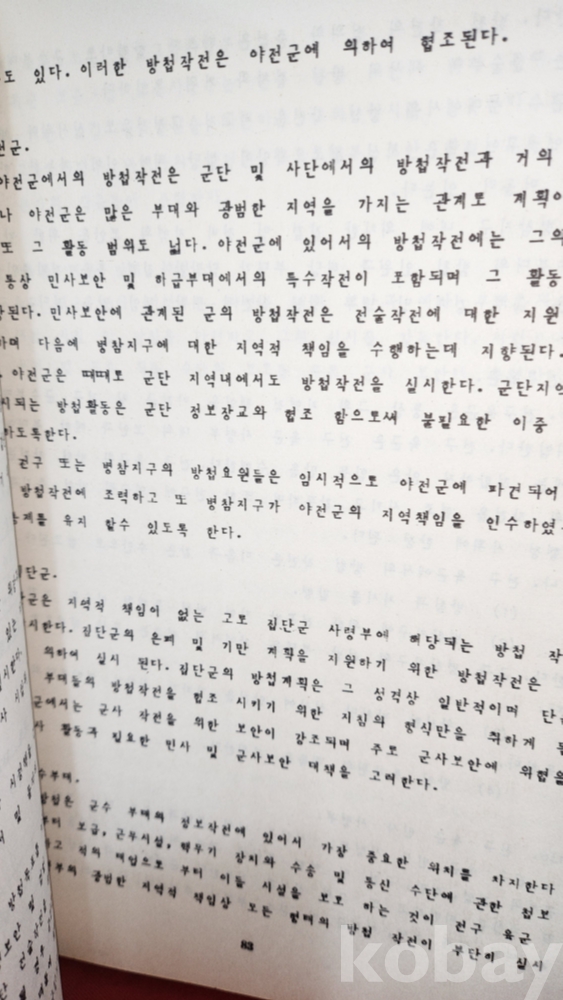 도 있다. 이러한 방첩작전은 야전군에 의하여 협조된다.
전군.
야전군에서의 방첩작전은 군단 및 사단에서의 방첩작전과 거의
나 야전군은 많은 부대와 광범한 지역을 가지는 관계로 계획이
또 그 활동 범위도 넓다. 야전군에 있어서의 방첩작전에는 그의
통상 민사보안 및 하급부대에서의 특수작전이 포함되며 그 활동
된다. 민사보안에 관계된 군의 방첩작전은 전술작전에 대한 지원
하며 다음에 병참지구에 대한 지역적 책임을 수행하는데 지향된다.
야전군은 때때로 군단 지역내에서도 방첩작전을 실시한다. 군단지역
시되는 방첩활동은 군단 정보장교와 협조 함으로써 불필요한 이중
하도록한다.
전구 또는 병참지구의 방첩요원들은 임시적으로 야전군에 파견되어
방첩작전에 조력하고 또 병참지구가 야전군의 지역책임을 인수하였
유지 할수 있도록 한다.
단군.
군은 지역적 책임이 없는 고로 집단군 사령부에 해당되는 방첩 작
시한다. 집단군의 은폐 및 기만 계획을 지원하기 위한 방첩작전은
의하여 실시 된다. 집단군의 방첩계획은 그 성격상 일반적이며 단
부대들의 방첩작전을 협조 시키기 위한 지침의 형식만을 취하게
군에서는 군사 작전을 위한 보안이 강조되며 주로 군사보안에 위협을
활동과 필요한 민사 및 군사보안 대책을 고려한다.
수부대.
방첩은 군수 부대의 정보작전에 있어서 가장 중요한 위치를 차지한다
부터 보급, 근무시설, 핵무기 장치와 수송 및 통신 수단에 관한 첩보
하고 적의 태업으로 부터 이들 시설을 보호 하는 것이 전구 육군
부의 광범한 지역적 책임상 모든 형태의 방첩 작전이 부단히 실시
83
kobay